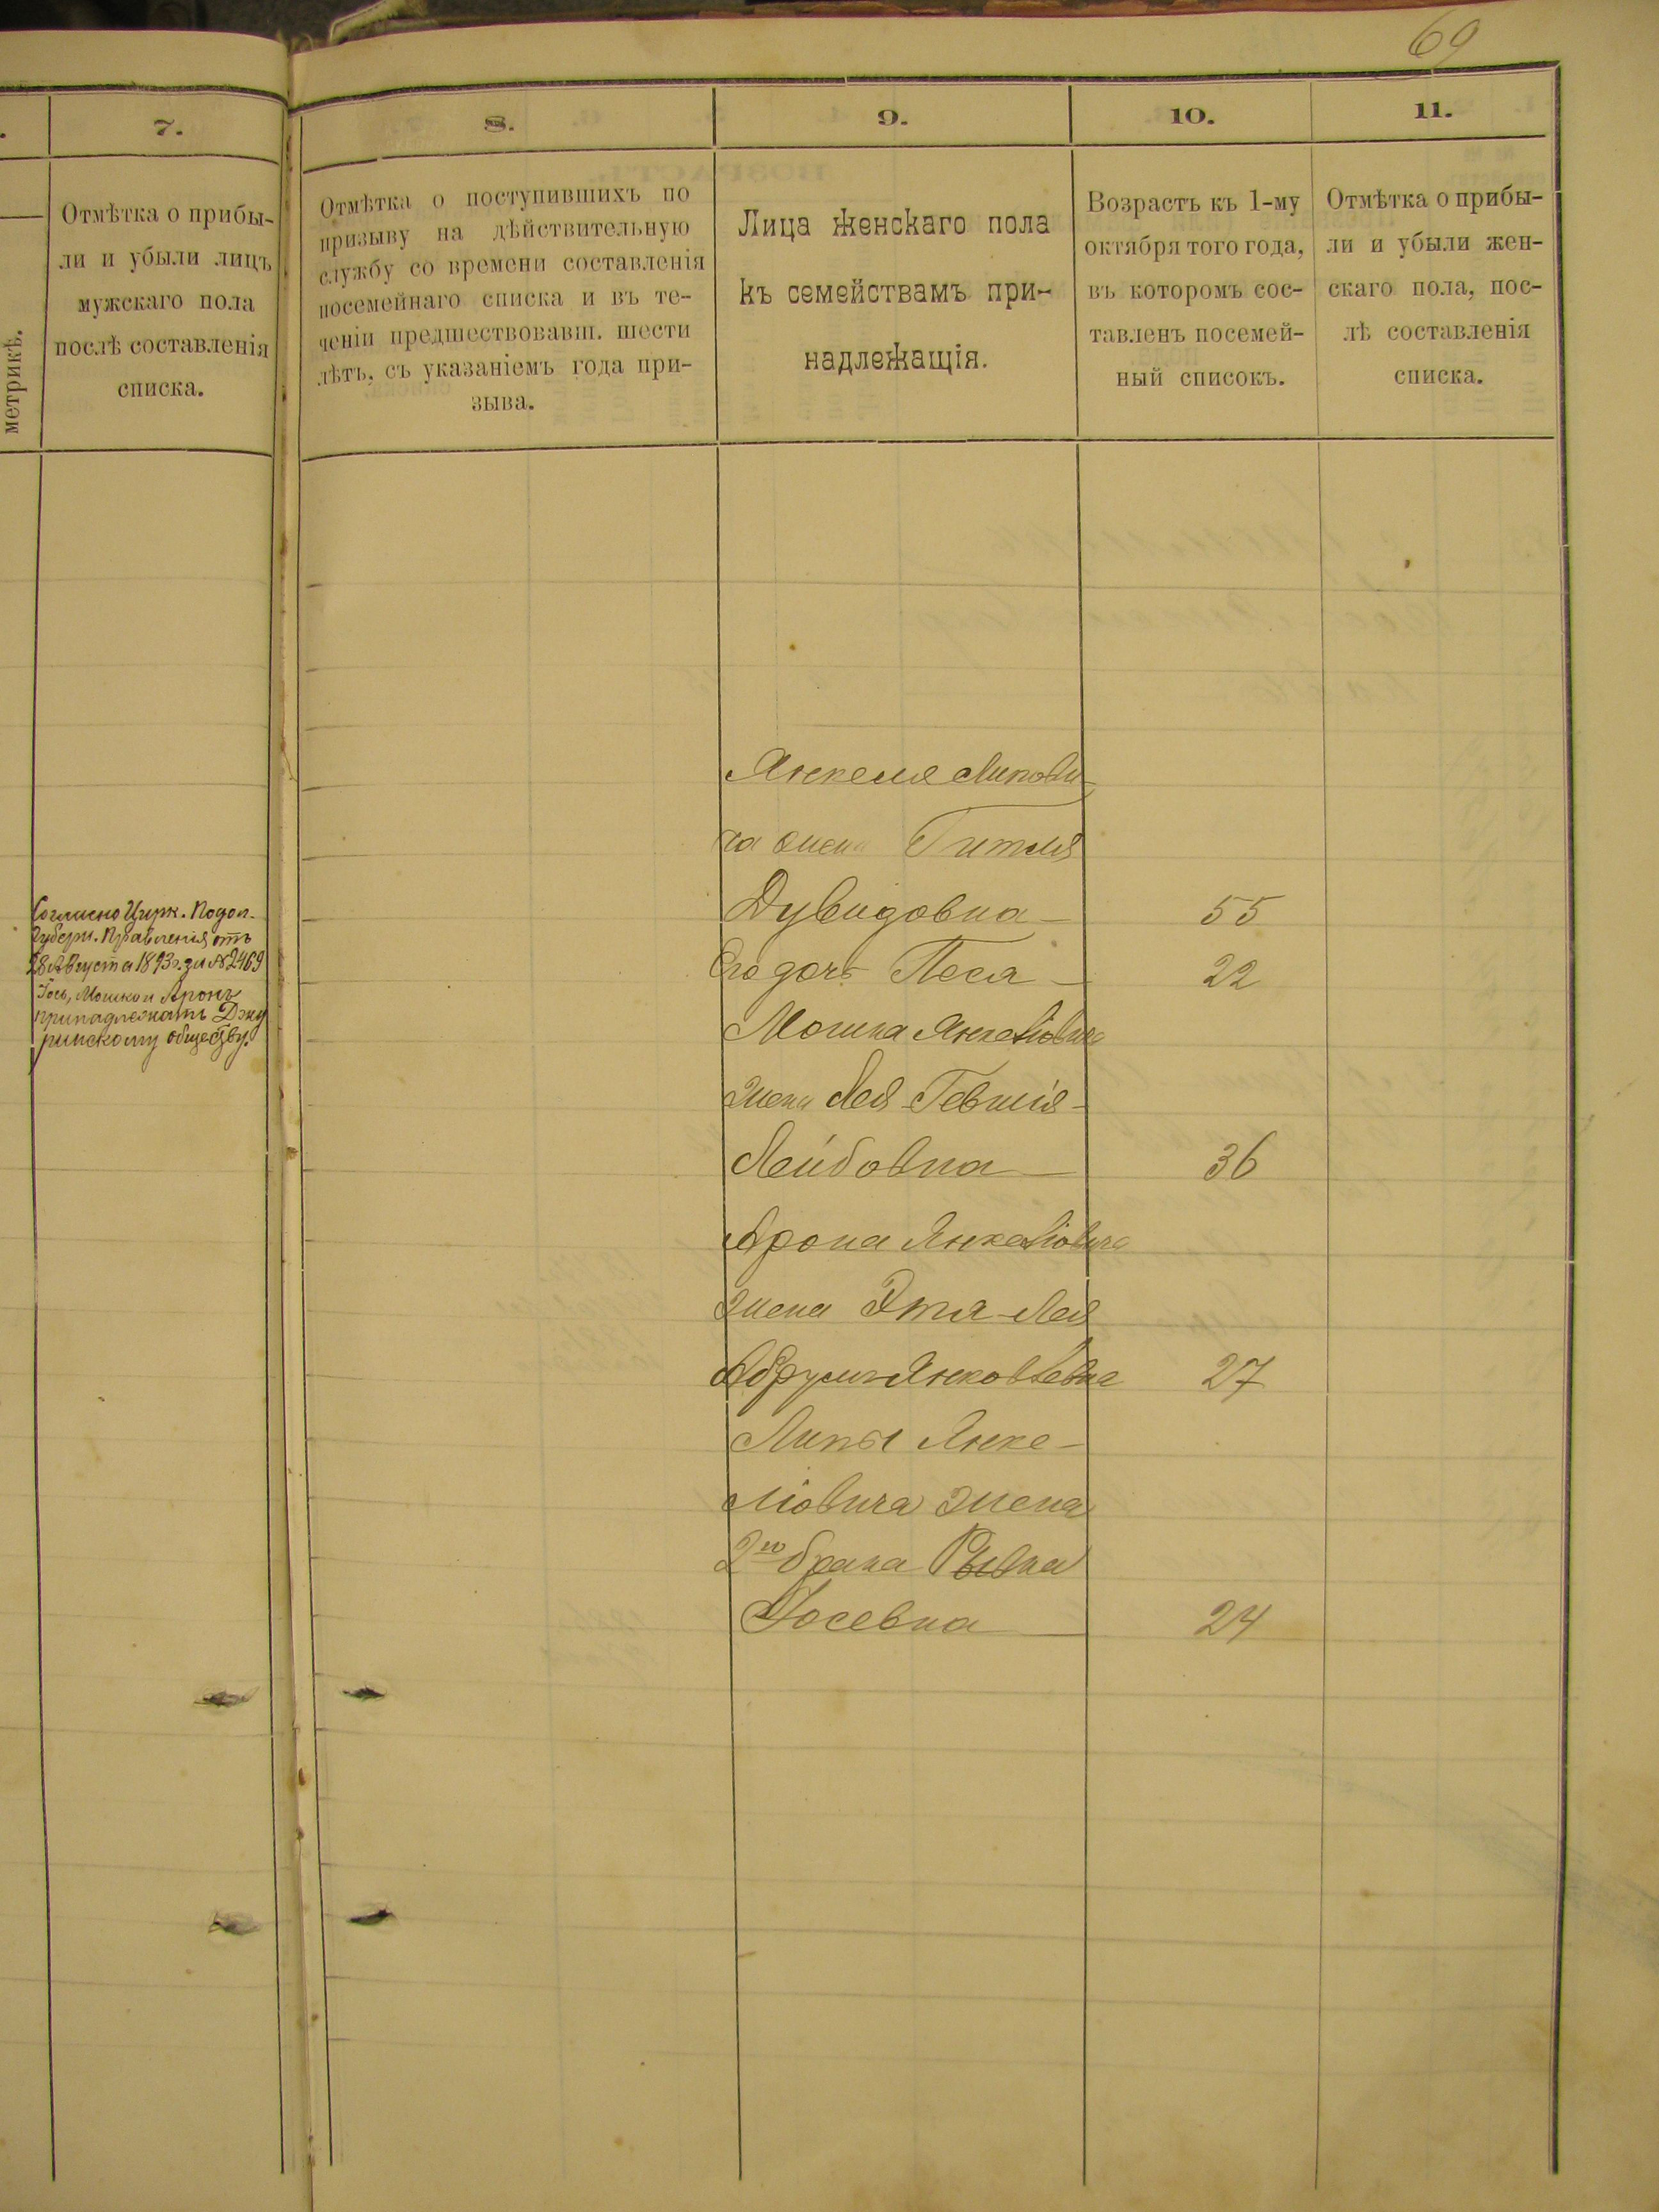 69
7.
8.
9.
10.
11.
метрикѣ.
Отмѣтка о прибы-
ли и убыли лицъ
мужскаго пола
послѣ составленія
списка.
Отмѣтка о поступившихъ по
призыву на дѣйствительную
службу со времени составленія
посемейнаго списка и въ те-
ченіи предшествовавш. шести
лѣтъ, съ указаніемъ года при-
зыва.
Лица женскаго пола
къ семействамъ при-
надлежащія.
Возрастъ къ 1-му
октября того года,
въ которомъ сос-
тавленъ посемей-
ный списокъ.
Отмѣтка о прибы-
ли и убыли жен-
скаго пола, пос-
лѣ составленія
списка.
Согласно Цирк. Подол.
Губерн. Правленія отъ
28 Августа 1893 г. за № 2469
Іось, Мошко и Аронъ
принадлежатъ Джу
ринскому обществу.
Янкеля Липови
ча жена Гитля
Дувидовна — 55
Его дочь Песя — 22
Мошка Янкеліовича
жена Лея-Гевшія-
Лейбовна — 36
Арона Янкеліовича
жена Этя-Лея
Абрумъ-Янковлевна 27
Липы Янке-
ліовича жена
2го брака Рывка
Іосевна — 24